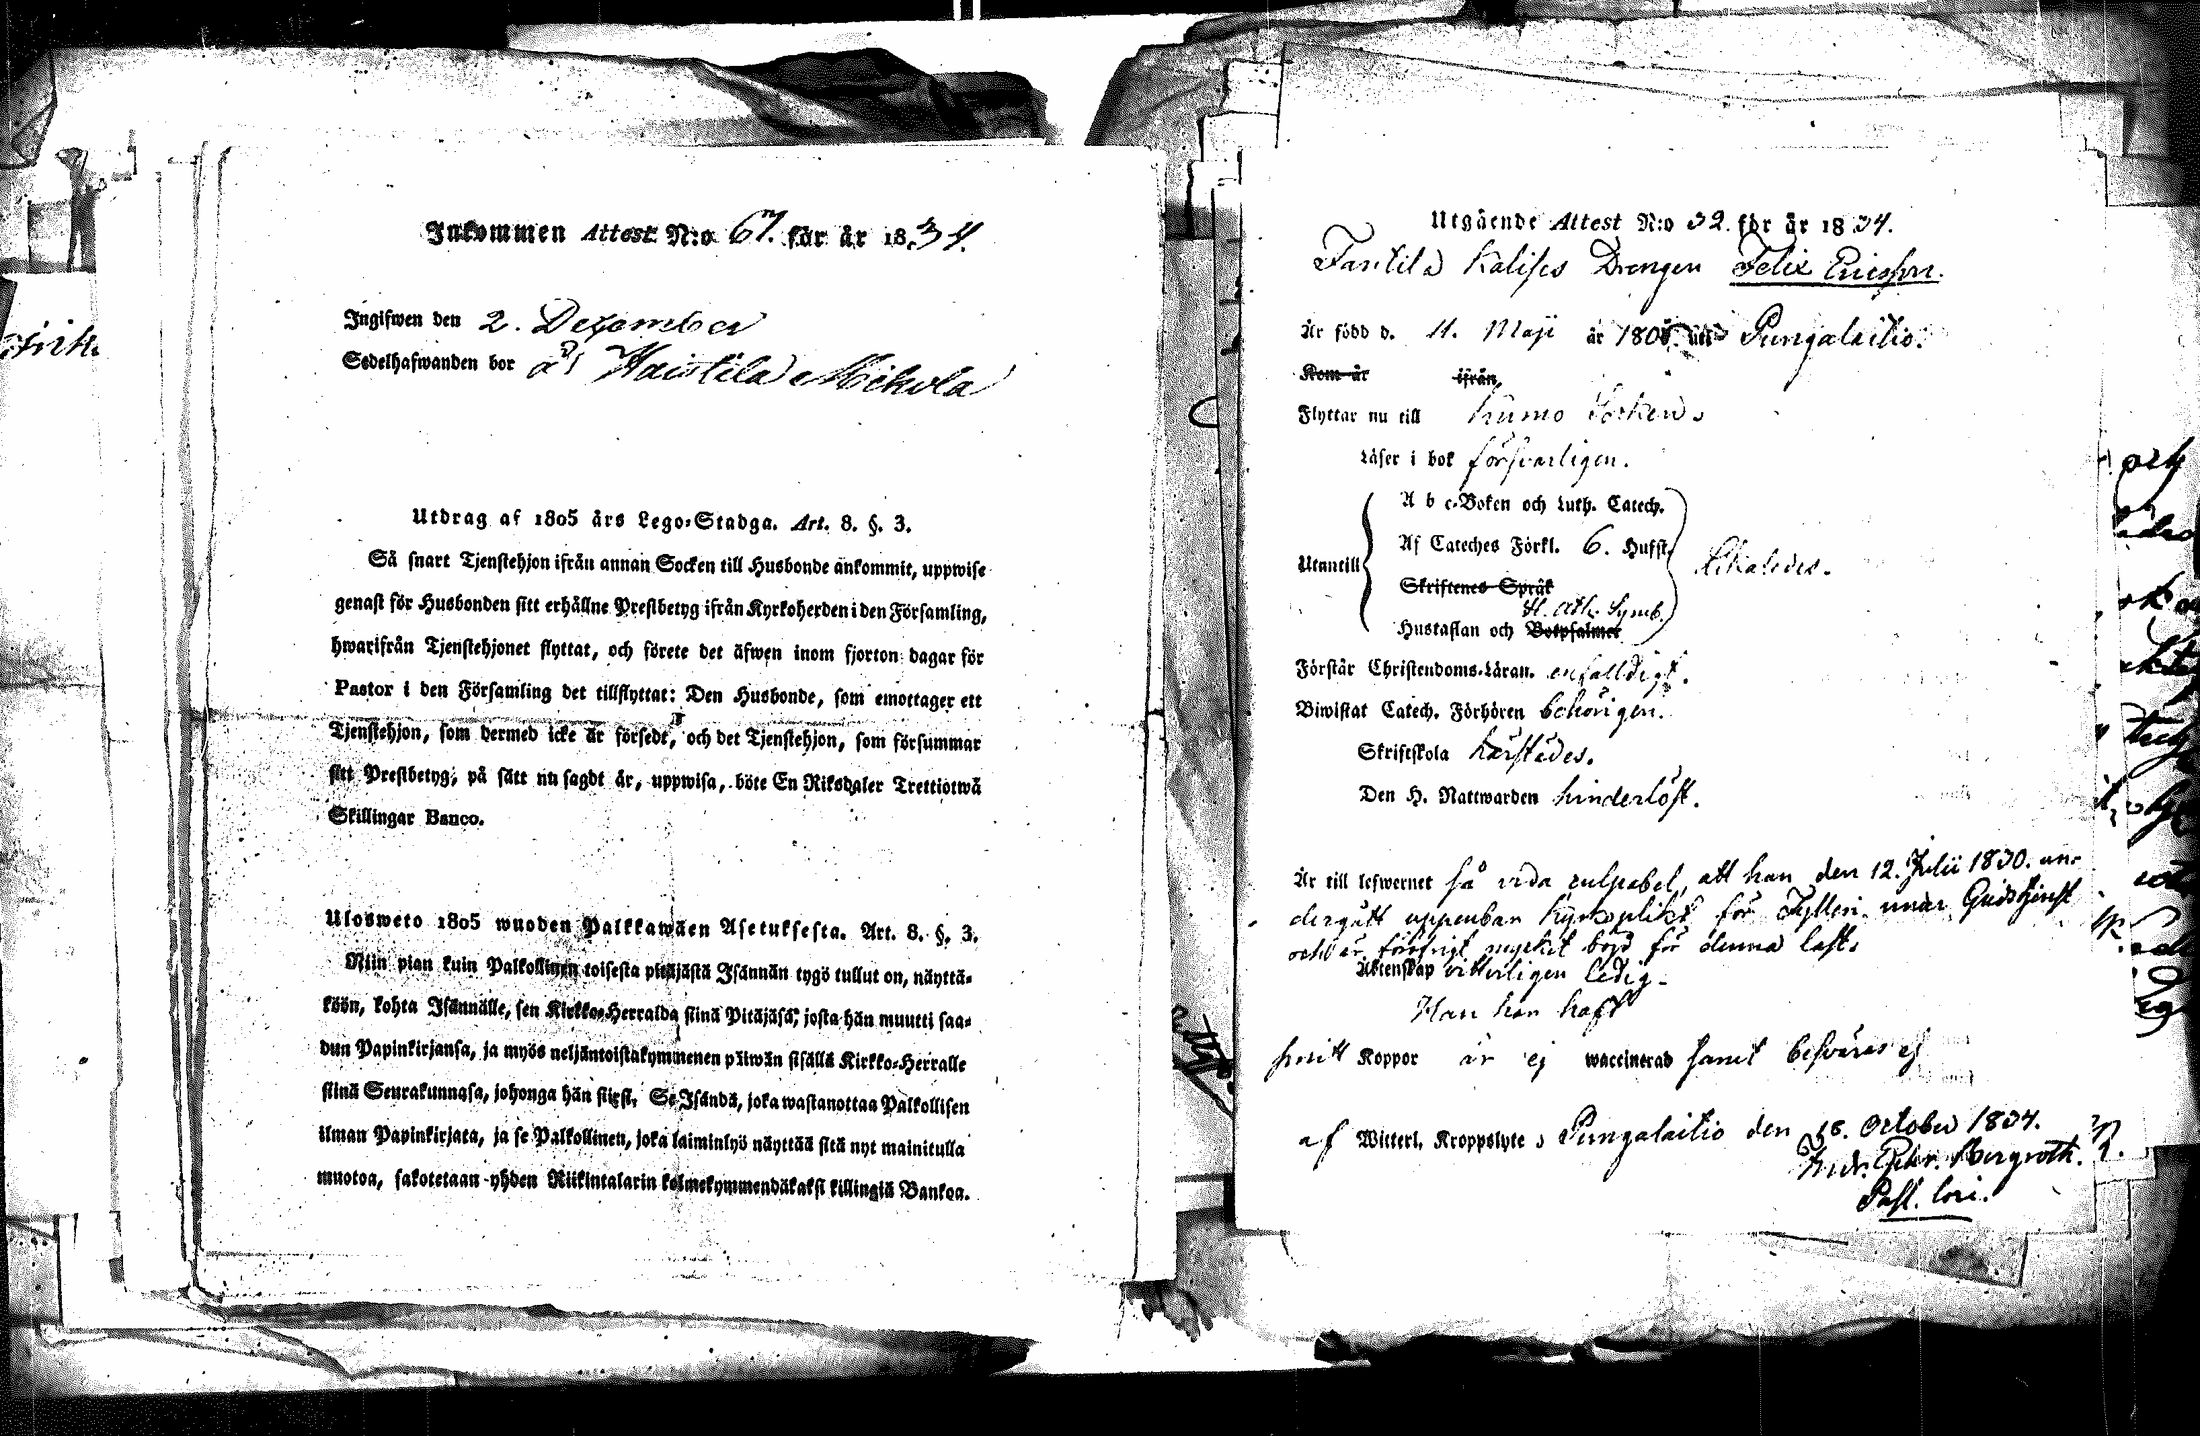 Inkommen Attest N:o 67. för år 1834.
Ingifwen den 2. December
Sedelhafwanden bor å Haistila Mickola
Utdrag af 1805 års Lego-Stadga. Art. 8. §. 3.
Så snart Tjenstehjon ifrån annan Socken till Husbonde ankommit, uppwise
genast för Husbonden sitt erhållne Prestbetyg ifrån Kyrkoherden i den Församling,
hwarifrån Tjenstehjonet flyttat, och förete det äfwen inom fjorton dagar för
Pastor i den Församling det tillflyttat: Den Husbonde, som emottager ett
Tjenstehjon, som dermed icke är försedt, och det Tjenstehjon, som försummar
sitt Prestbetyg, på sätt nu sagdt är, uppwisa, böte En Riksdaler Trettiotwå
Skillingar Banco.
Ulosweto 1805 wuoden Palkkawäen Asetuksesta. Art. 8. §. 3.
Niin pian kuin Palkollinen toisesta pitäjästä Isännän tygö tullut on, näyttä-
köön, kohta Isännälle, sen Kirkko-Herralda siinä Pitäjäsä, josta hän muutti saa-
dun Papinkirjansa, ja myös neljäntoistakymmenen päiwän sisällä Kirkko-Herralle
siinä Seurakunnasa, johonga hän siirst. Se Isändä, joka wastanottaa Palkollisen
ilman Papinkirjata, ja se Palkollinen, joka laiminlyö näyttää sitä nyt mainitulla
muotoa, sakotetaan yhden Riikintalarin kolmekymmendäkaksi killingiä Bankoa.
Utgående Attest N:o 32. för år 1834.
Drengen Felix Ericsson.
Är född d. 11. Maji år 180 uti Pungalaitio.
Kom år ifrån
Flyttar nu till Kumo Socken.
Läser i bok försvarligen.
A b c-Boken och Luth. Catech.
Af Cateches Förkl. 6. Hufst.
Utantill likaledes.
Skriftenes Språk
H. Ath. Symb.
Hustaflan och Botpsalmer
Förstår Christendoms-Läran. enfalldigt.
Biwistat Catech. Förhören behörigen.
Skriftskola härstädes.
Den H. Nattwarden hinderlöst.
Är till lefwernet så vida culpabel, att han den 12. Julii 1830. un-
dergått uppenbar kyrkoplikt för Fylleri under Gudstjenst
och är föröfrigt mycket böjd för denna last.
Äktenskap vitterligen ledig.
Han har haft
Koppor är ej waccinerad samt besväras ej
af Witterl. Kroppslyte, Pungalaitio den 18. October 1834.
Bergroth.
Past. loci.